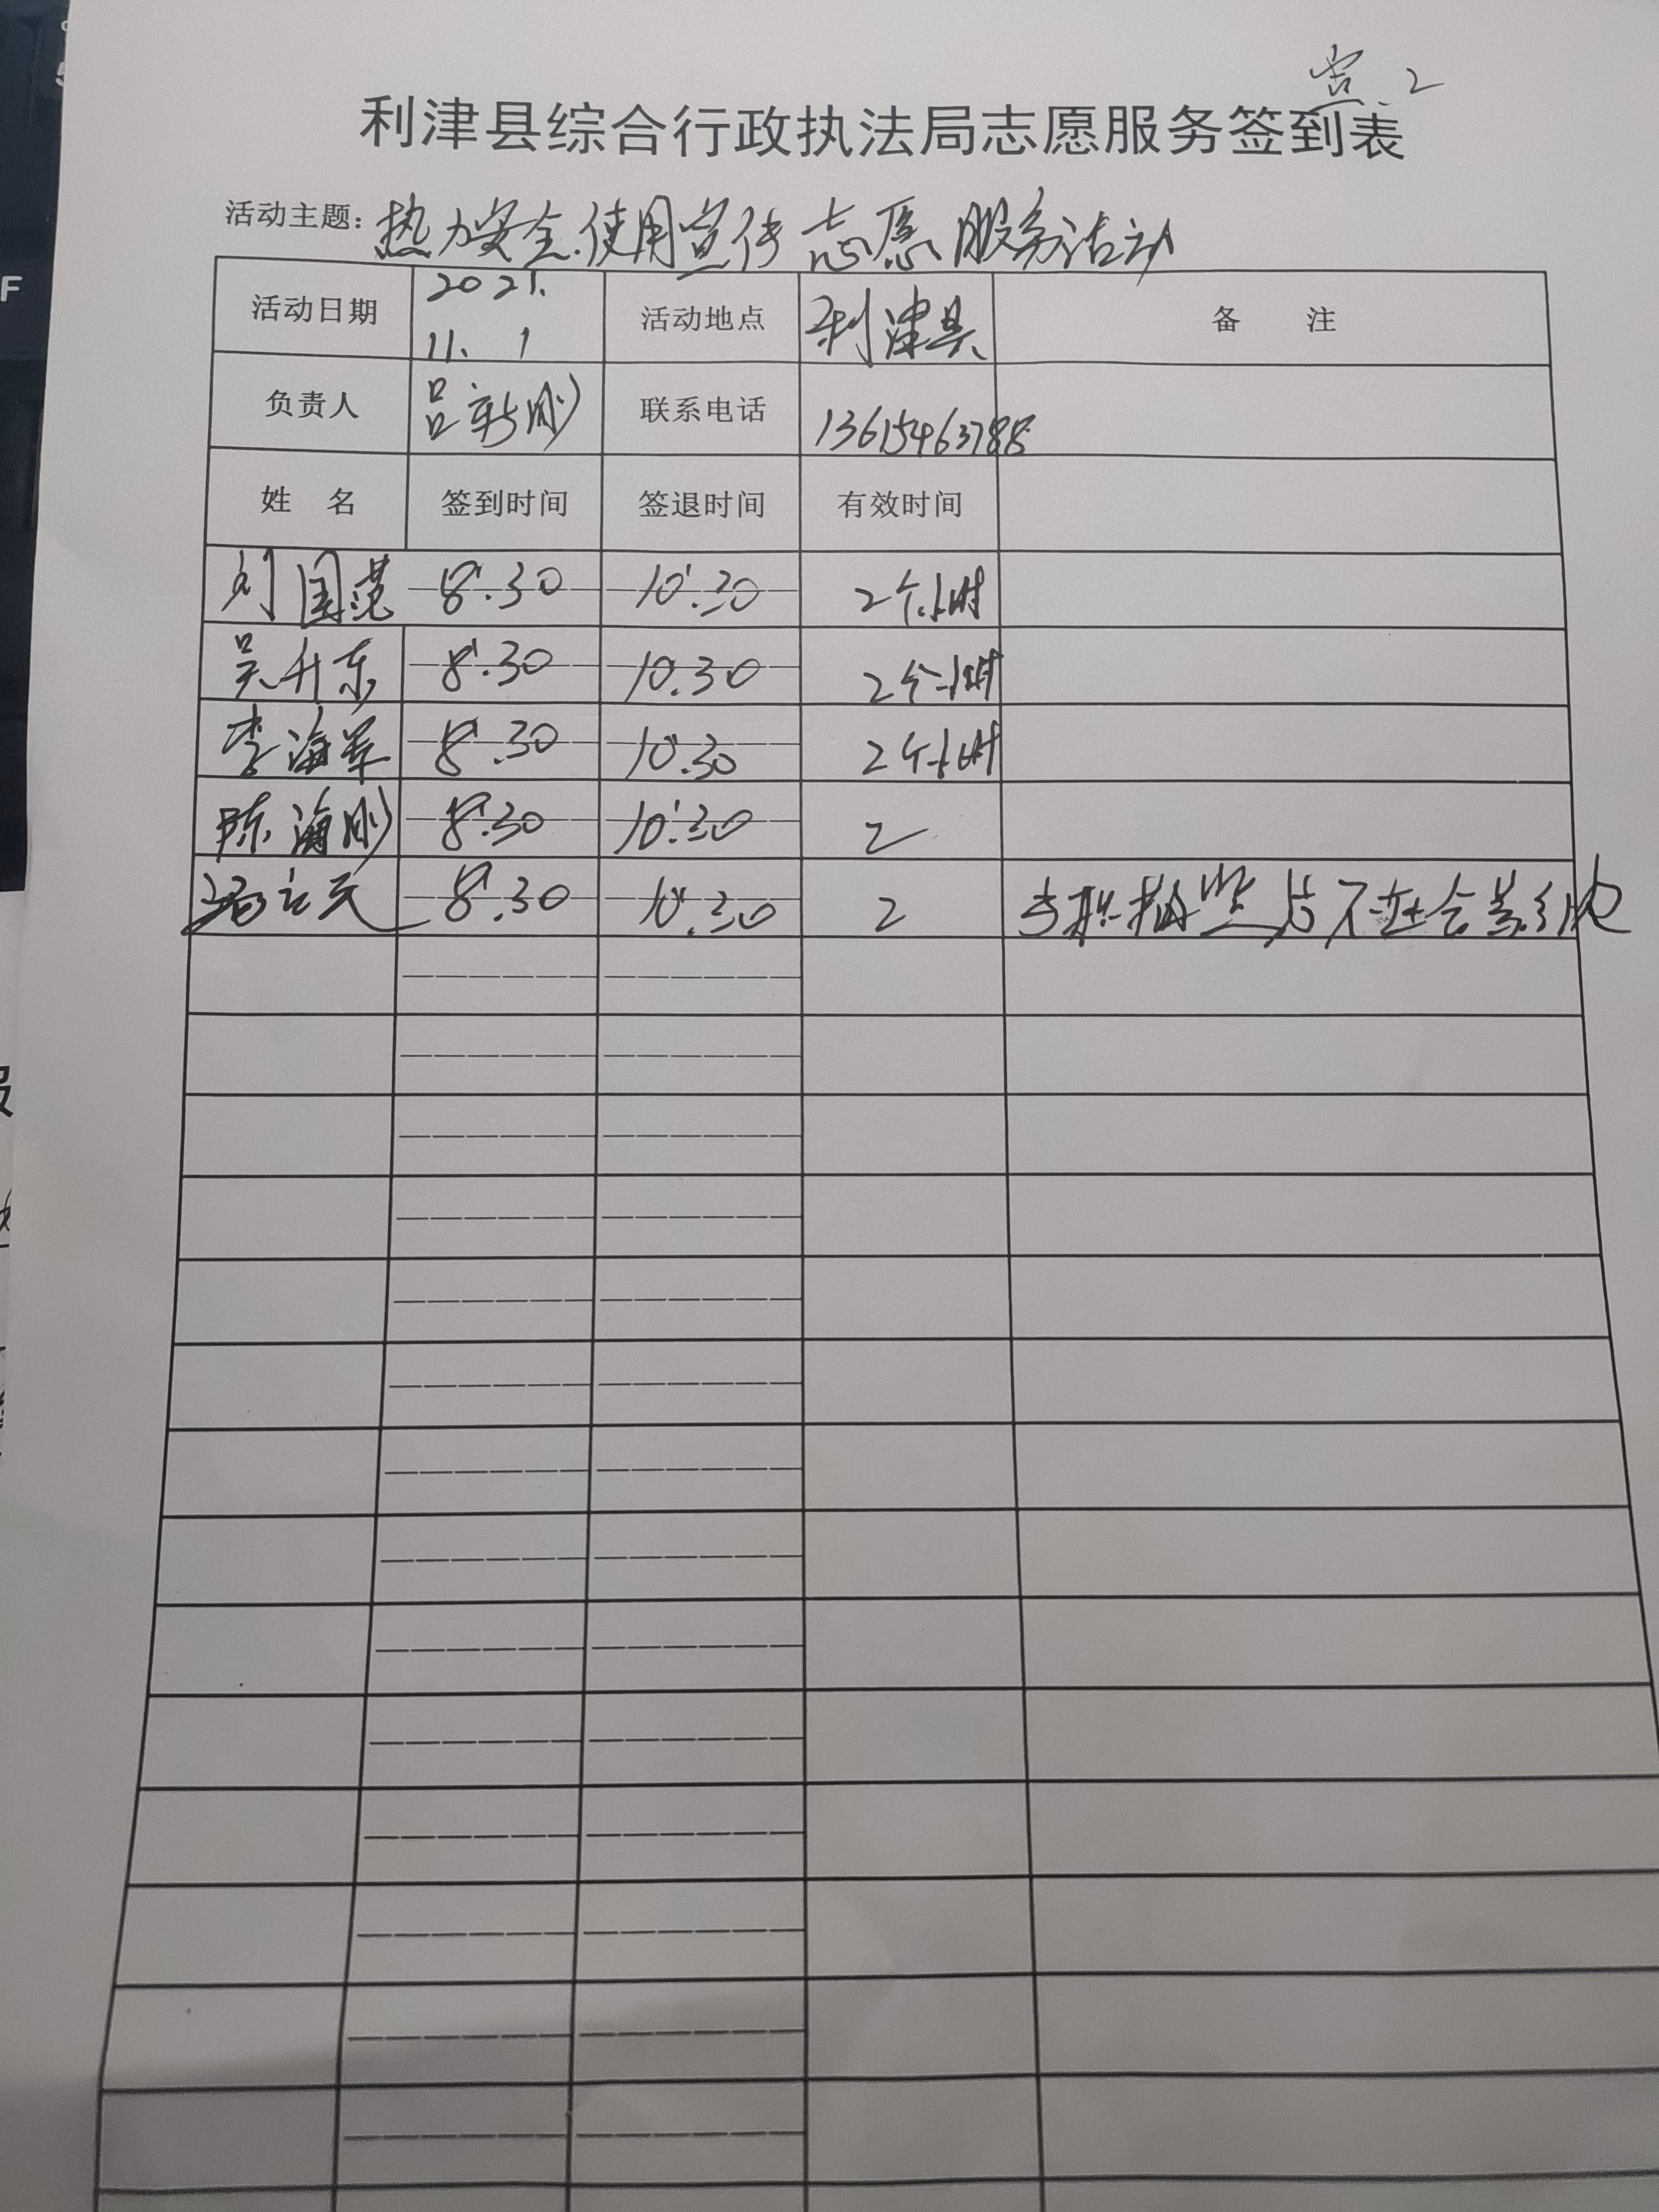 2
利津县综合行政执法局志愿服务签到表
活动主题：热力安全使用宣传志愿服务活动
活动日期 2021.11.1 活动地点 利津县 备 注
负责人 吕新刚 联系电话 13615463788
姓 名 签到时间 签退时间 有效时间
刘国范 8:30 10:30 2个小时
吴升东 8:30 10.30 2个小时
李海军 8:30 10:30 2个小时
陈海刚 8:30 10:30 2
8:30 10:30 2